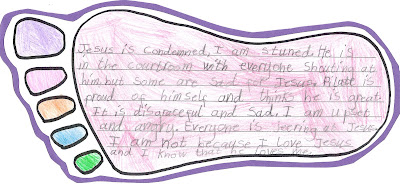 Jesus is condemned, I am stuned. He is
in the courtroom with everyone shouting at
him, but some are sad for Jesus. Pilate is
proud of himself and thinks he is great.
It is disgraceful and sad. I am upset
and angry. Everyone is leering at Jesus
I am not because I love Jesus
and I know that he loves me.